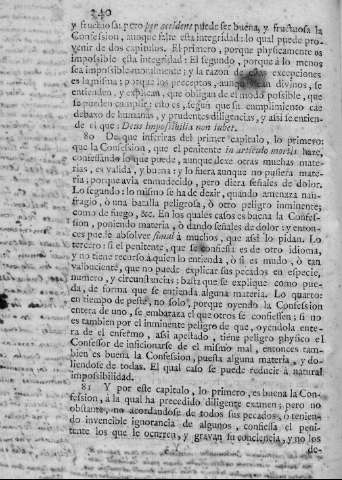 240
y fructuosa: pero per accidens puede ser buena, y fructuosa la
Confession, aunque falte esta integridad: lo qual puede pro-
venir de dos capitulos. El primero, porque physicamente es
impossible esta integridad: El segundo, porque à lo menos
sea impossible moralmente; y la razon de estas excepciones
es la misma; porque los preceptos, aunque sean divinos, se
entienden, y explican, que obligan de el modo possible, que
se pueden cumplir; esto es, segun que su cumplimiento cae
debaxo de humanas, y prudentes diligencias, y assi se entien-
de el que: Deus impossibilia non iubet.
80 De que infeciras del primer capitulo, lo primero:
que la Confession, que el penitente in articulo mortis hace,
confessando lo que puede, aunque dexe otras muchas mate-
rias, es valida, y buena: y lo fuera aunque no pusiera mate-
ria; porque avia enmudecido, pero diera señales de dolor.
Lo segundo: lo mismo se ha de dezir, quando amenaza nau-
fragio, ò una batalla peligrosa, ò otro peligro inminente;
como de fuego, &c. En los quales casos es buena la Confes-
sion, poniendo materia, ò dando señales de dolor: y enton-
ces puede absolver simul à muchos, que assi lo pidan. Lo
tercero: si el penitente, que se confiessa es de otro idioma,
y no tiene recurso à quien lo entienda, ò si es mudo, ò tan
valbuciente, que no puede explicar sus pecados en especie,
numero, y circunstancias: basta que se explique como pue-
da, de forma que se entienda alguna materia. Lo quarto:
en tiempo de peste, no solo, porque oyendo la Confession
entera de uno, se embaraza el que otros se confiessen; si no
es tambien por el inminente peligro de que, oyendola ente-
ra de el enfermo, assi apestado, tiene peligro physico el
Confessor de inficionarse de el mismo mal, entonces tam-
bien es buena la Confession, puesta alguna materia, y do-
liendose de todas. El qual caso se puede reducir à natural
impossibilidad.
81 Y por este capitulo, lo primero, es buena la Con-
fession, à la qual ha precedido diligente examen; pero no
obstante, no acordandose de todos sus pecados, ò tenien-
do invencible ignorancia de algunos, confiessa el peni-
tente los que le ocurren, y gravan su conciencia, y no los
de-